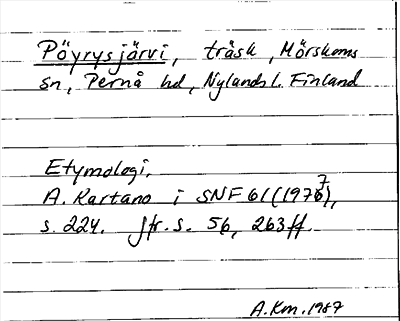 Pöyrysjärvi, träsk, Mörskoms
sn, Pernå hd, Nylands l. Finland
Etymologi.
A. Kartano i SNF 61 (1977),
s. 224. Jfr. s. 56, 263 ff.
A.Km. 1987